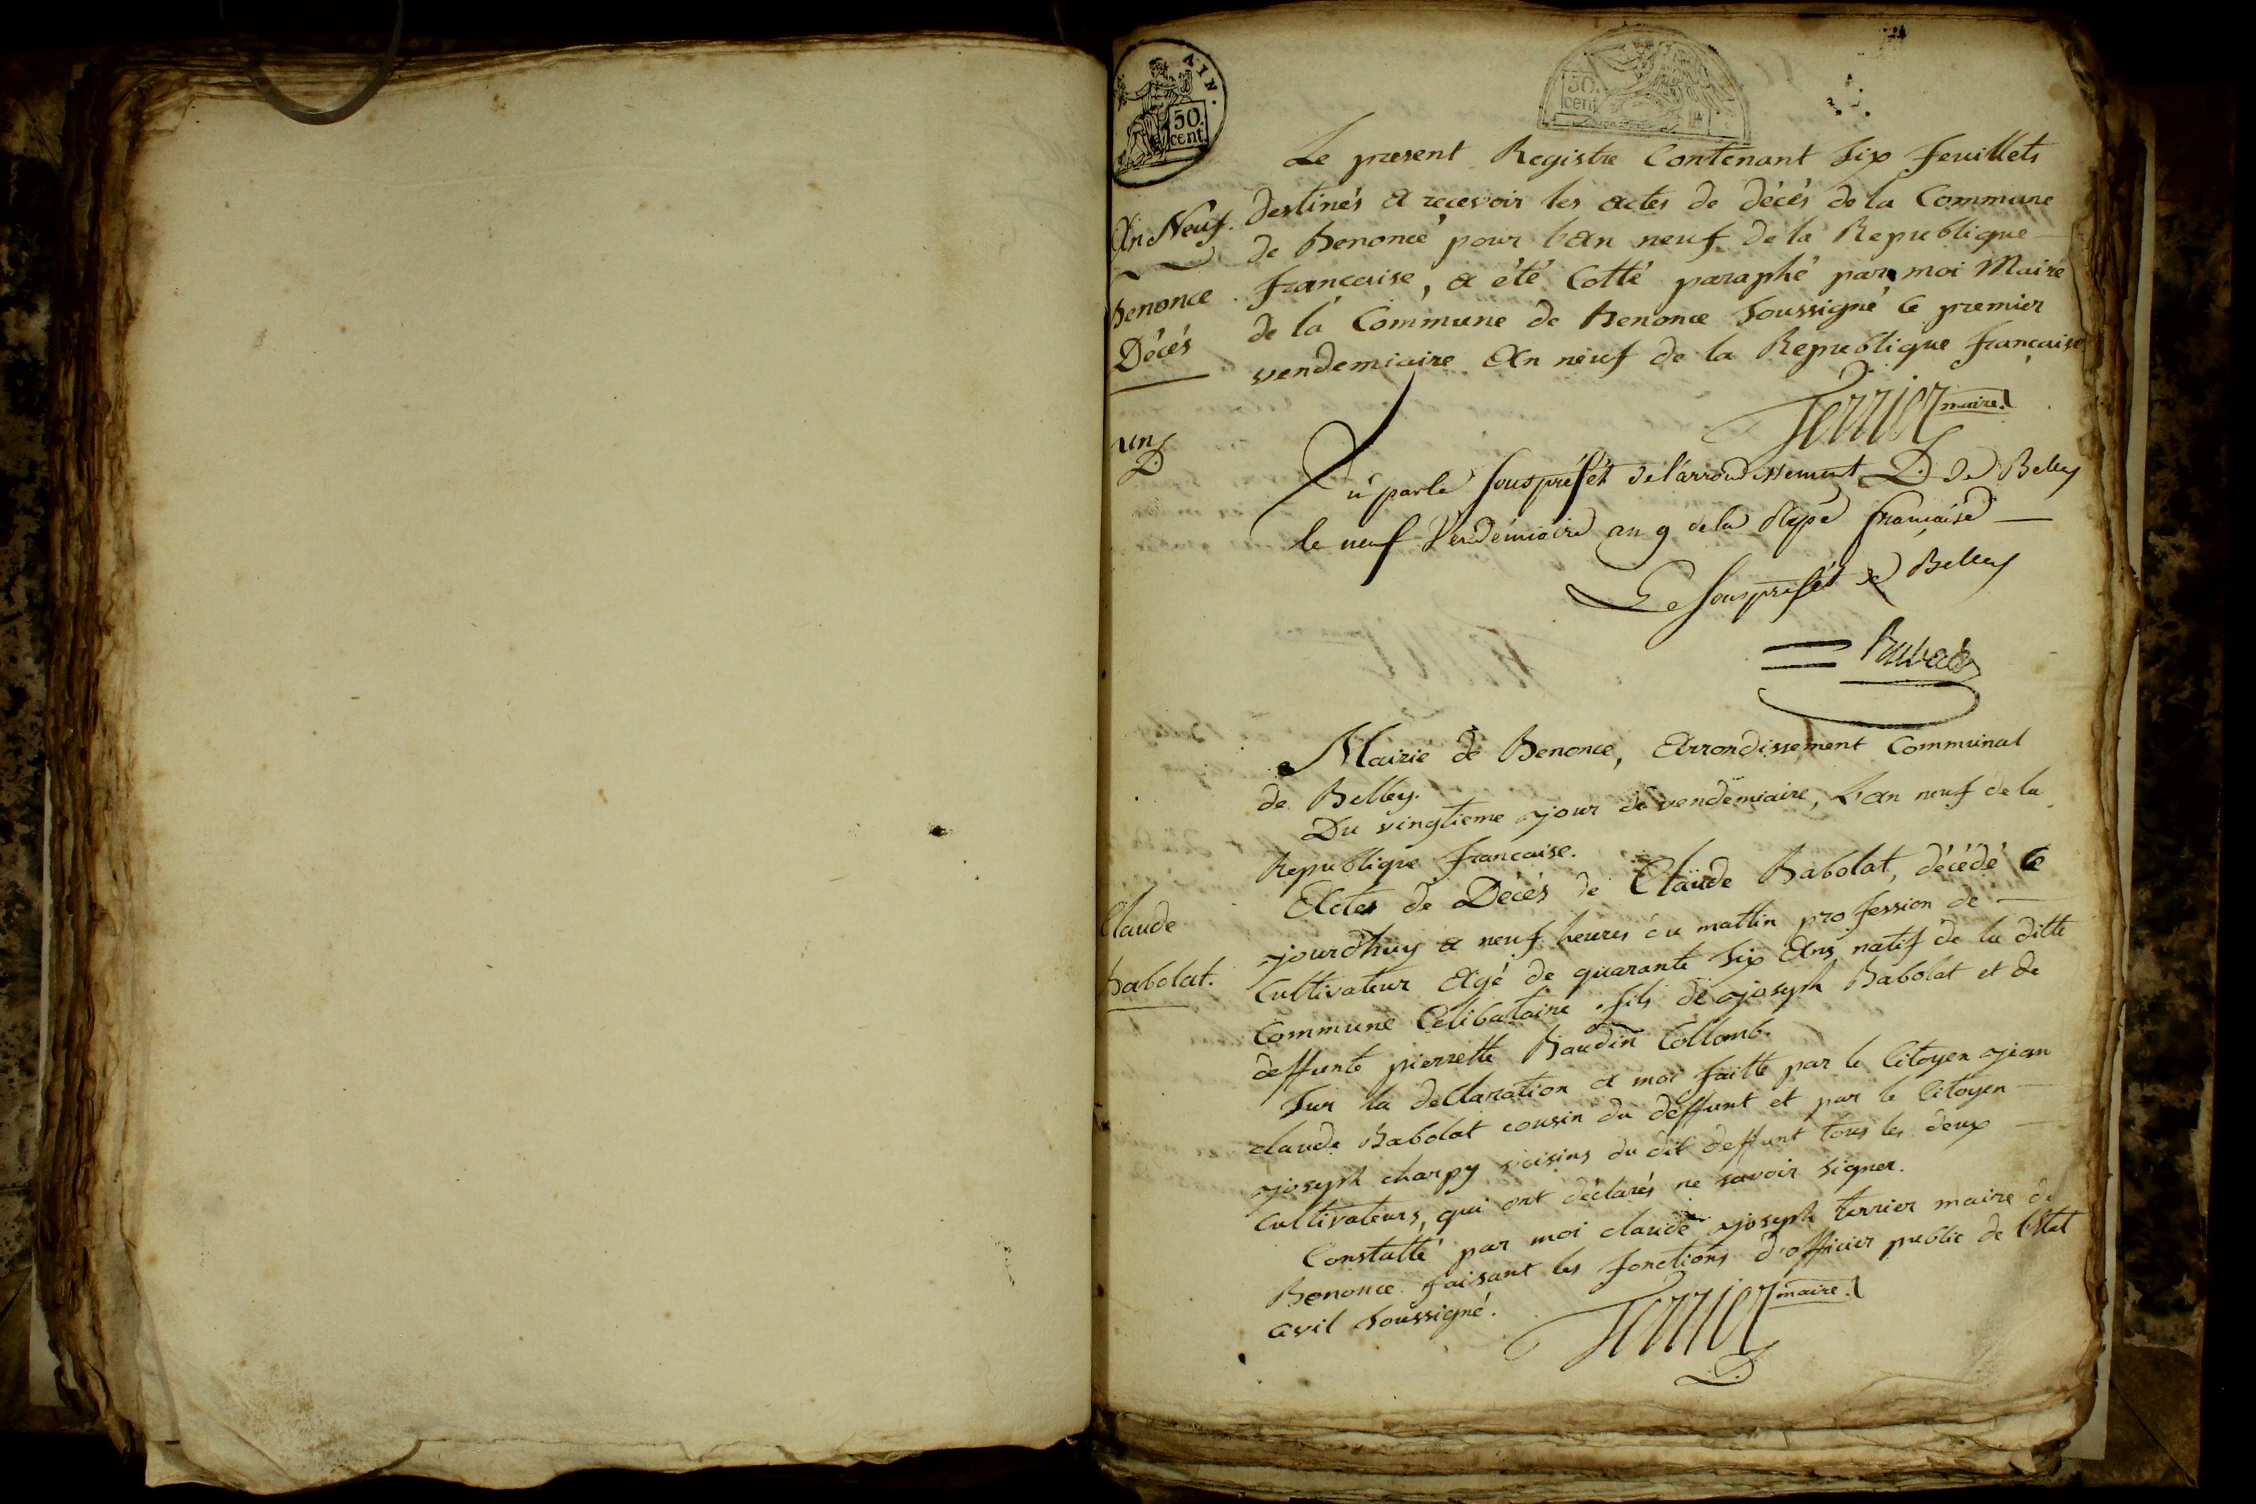 AIN.
50.
cent.
50.
cent
Le present Registre Contenant Six feuillets
An Neuf.
destinés a recevoir les actes de décés de la Commune
de Benonce pour l'an neuf de la Republique
Benonce
francaise, a été Cotté paraphé par moi Maire
de la Commune de Benonce Soussigné ce premier
Décés
vendemiaire An neuf de la Republique francaise
Terrier maire.
un
Vù par le Souspréfét de l'arrondissement de Belley
le neuf Vendémiaire an 9 de la Repe française
Le Souspréfét de Belley
Mairie de Benonce, Arrondissement Communal
de Belley.
Du vingtieme jour de vendemiaire, L'an neuf de la
Republique francaise.
Actes de Décés de Claude Babolat, décédé ce
Claude
jourdhuy a neuf heures du mattin profession de
Cultivateur Agé de quarante Six Ans natif de la ditte
Babolat.
Commune Celibataire fils de joseph Babolat et de
deffunte pierrette Baudin Collomb.
Sur la declaration a moi faitte par le Citoyen jean
claude Babolat cousin du deffunt et par le Citoyen
joseph charpy voisins du dit deffunt tous les deux
Cultivateurs, qui ont déclarés ne savoir signer.
Constatté par moi claude joseph terrier maire de
Benonce faisant les fonctions d'officier public de l'état
civil Soussigné.
Terrier maire.